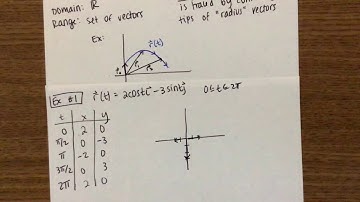 Domain: ℝ
Range: set of vectors
is traced by
tips of "radius" vectors
Ex:
r⃗(t)
Ex #1 r⃗(t) = 2costi⃗ - 3sintj⃗ 0≤t≤2π
t x y
0 2 0
π/2 0 -3
π -2 0
3π/2 0 3
2π 2 0